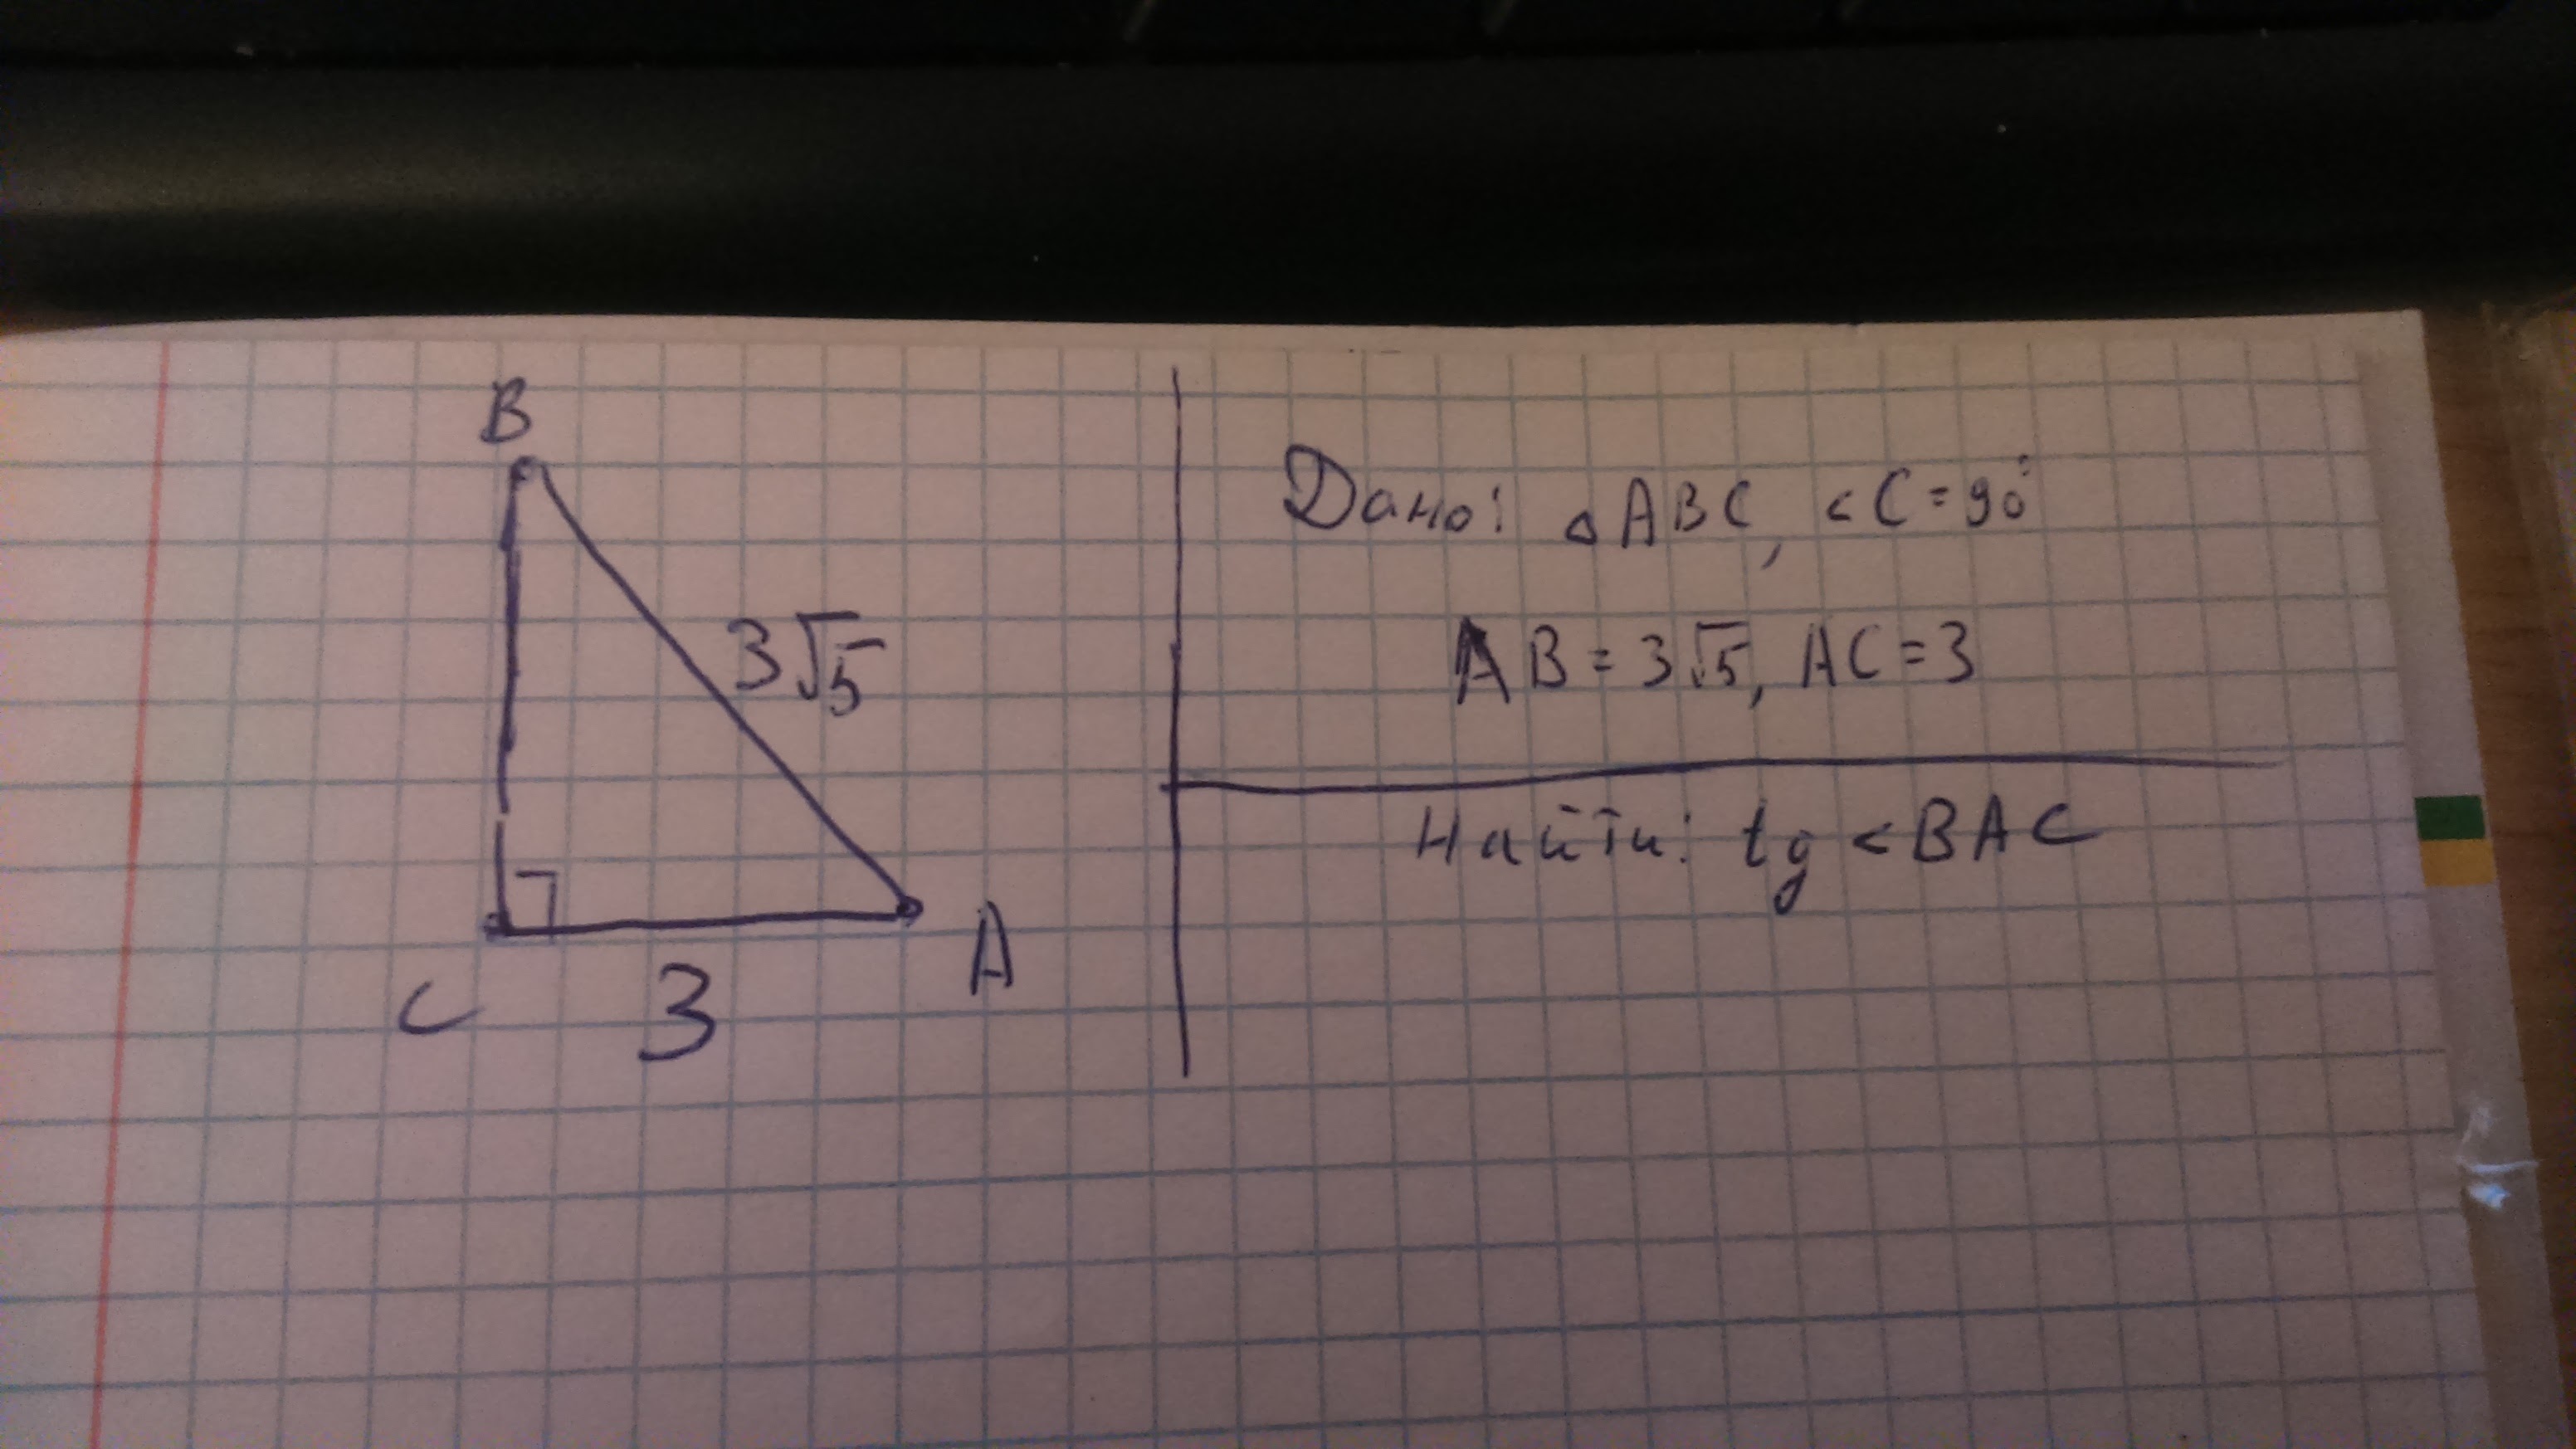 B
3√5
C
3
A
Дано: △ABC, <C=90°
AB = 3√5, AC=3
Найти: tg <BAC